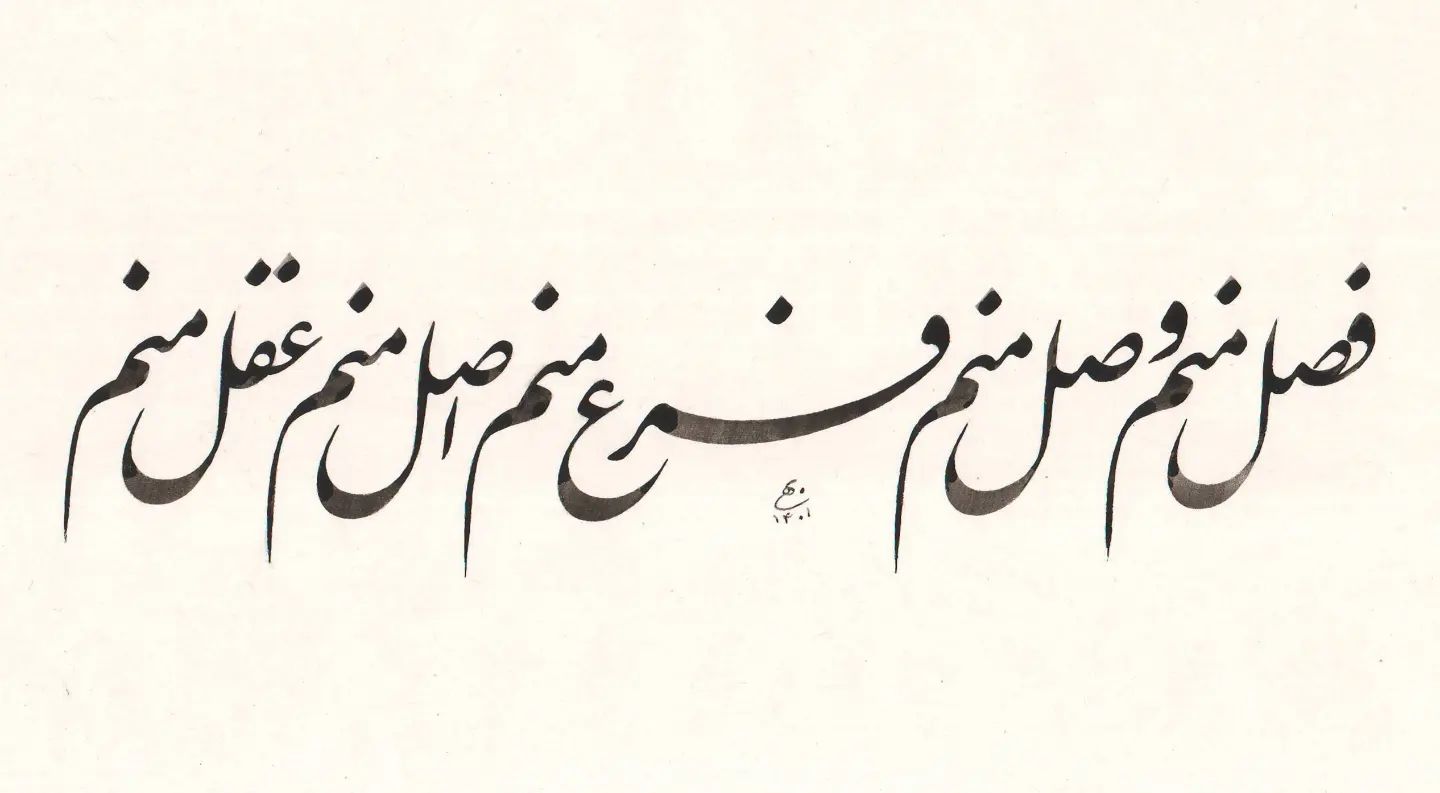 فصل منم وصل منم فرع منم اصل منم عقل منم
۱۴۰۱